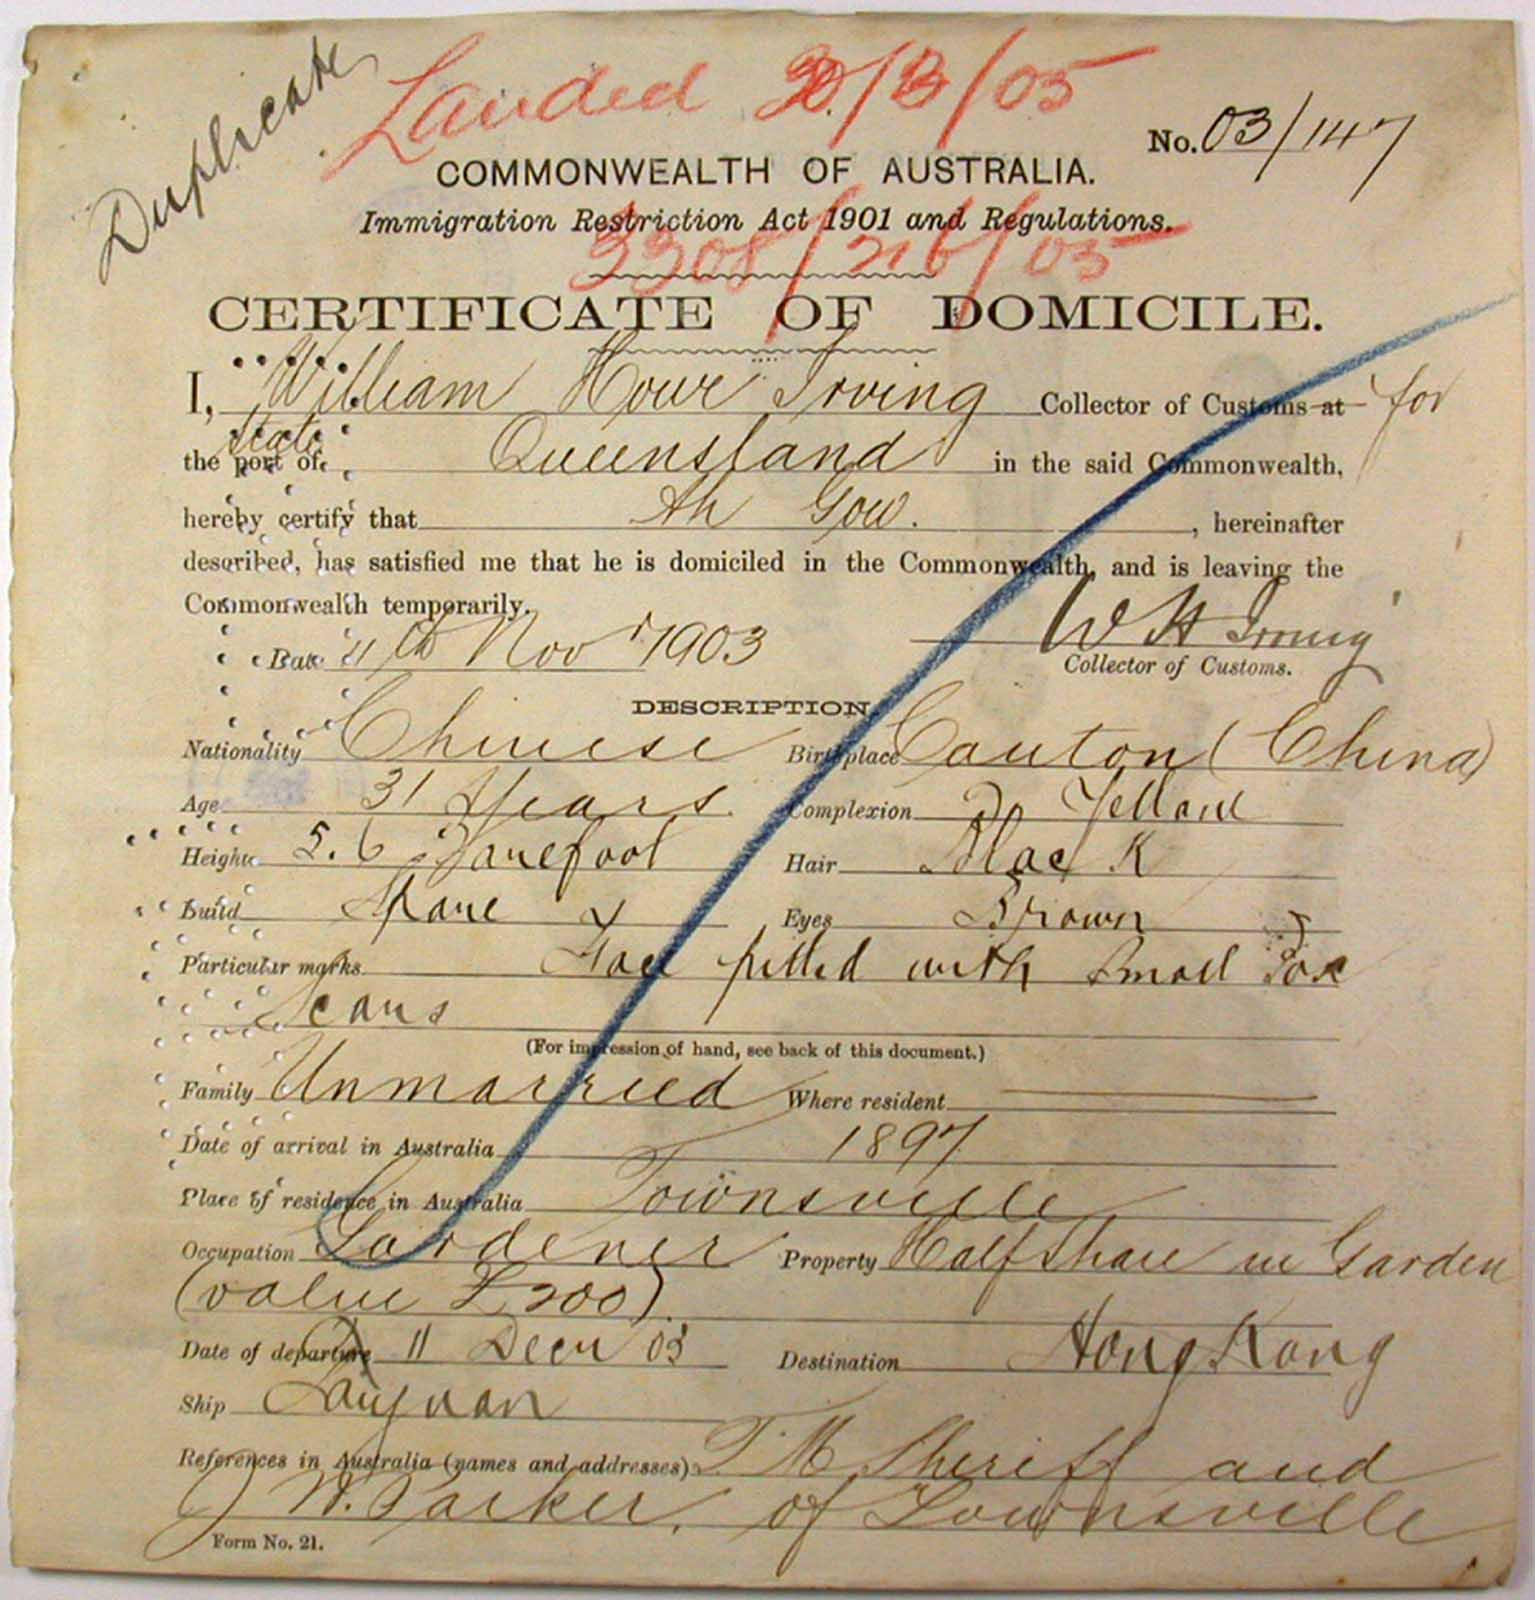 Duplicate
Landed 30/3/05
No. 03/147
COMMONWEALTH OF AUSTRALIA.
Immigration Restriction Act 1901 and Regulations.
3308/216/05
CERTIFICATE OF DOMICILE.
I, William Howe Irving Collector of Customs at for
State
the port of Queensland in the said Commonwealth,
hereby certify that Ah Gow. , hereinafter
described, has satisfied me that he is domiciled in the Commonwealth, and is leaving the
Commonwealth temporarily.
W H Irving
Date 11th Nov r 1903
Collector of Customs.
DESCRIPTION.
Nationality Chinese Birthplace Canton (China)
Age 31 Years. Complexion Yellow
Height 5.6 Barefoot Hair Black
Build Spare Eyes Brown
Particular marks Face pitted with Small Pox
Scars
(For impression of hand, see back of this document.)
Family Unmarried Where resident
Date of arrival in Australia 1897
Place of residence in Australia Townsville
Occupation Gardener Property Half Share in Garden
(value £200)
Date of departure 11 Decr 03 Destination Hong Kong
Ship Taiyuan
References in Australia (names and addresses) T. M Sheriff and
J W. Parker, of Townsville
Form No. 21.